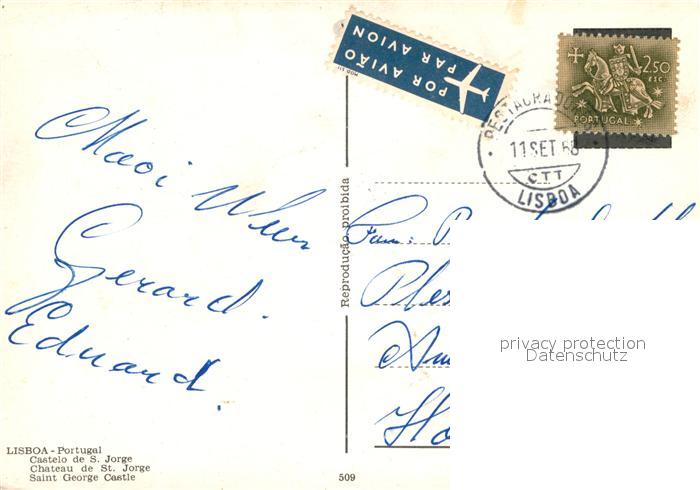 POR AVIÃO
PAR AVION
MOD. 511
2.50
ESC.
PORTUGAL
RESTAURADORES
11 SET 68
CTT
LISBOA
Mooi Weer
Gerard.
Eduard.
Reprodução proibida
Fam:
privacy protection
Datenschutz
LISBOA - Portugal
Castelo de S. Jorge
Chateau de St. Jorge
Saint George Castle
509